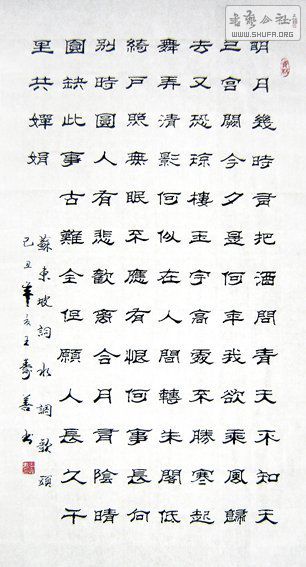 書艺公社
WWW.SHUFA.ORG
明月幾時有把酒問青天不知天
上宮闕今夕是何年我欲乘風歸
去又恐琼樓玉宇高處不勝寒起
舞弄清影何似在人間轉朱閣低
綺戶照無眠不應有恨何事長向
別時圓人有悲歡離合月有陰晴
圓缺此事古難全但願人長久千
里共嬋娟
蘇東坡詞水調歌頭
己丑年冬王善书